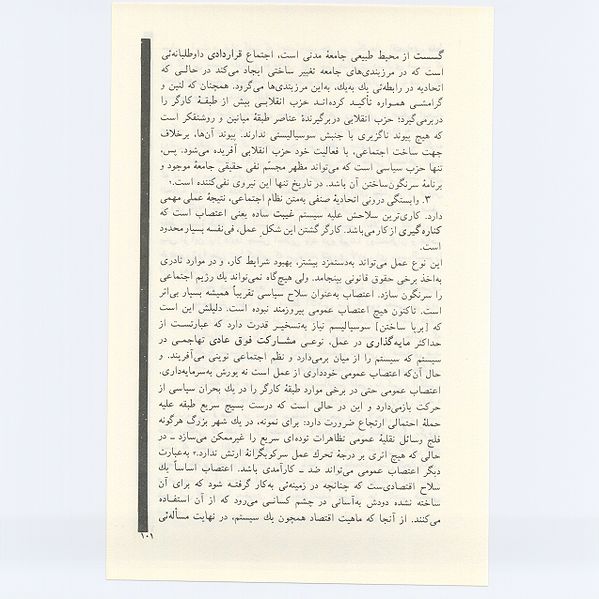 گسست از محیط طبیعی جامعهٔ مدنی است، اجتماع قراردادی داوطلبانه‌ئی
است که در مرزبندی‌های جامعه تغییر ساختی ایجاد می‌کند در حالی که
اتحادیه در رابطه‌ئی یك به‌یك، به‌این مرزبندی‌ها می‌گرود. همچنان که لنین و
گرامشی همواره تأکید کرده‌اند حزب انقلابی بیش از طبقهٔ کارگر را
دربرمی‌گیرد؛ حزب انقلابی دربرگیرندهٔ عناصر طبقهٔ میانین و روشنفکر است
که هیچ پیوند ناگزیری با جنبش سوسیالیستی ندارند. پیوند آن‌ها، برخلاف
جهت ساخت اجتماعی، با فعالیت خود حزب انقلابی آفریده می‌شود. پس،
تنها حزب سیاسی است که می‌تواند مظهر مجسّم نفی حقیقی جامعهٔ موجود و
برنامهٔ سرنگون‌ساختن آن باشد. در تاریخ تنها این نیروی نفی‌کننده است.
۳. وابستگی درونی اتحادیهٔ صنفی به‌متن نظام اجتماعی، نتیجهٔ عملی مهمی
دارد. کاری‌ترین سلاحش علیه سیستم غیبت ساده یعنی اعتصاب است که
کناره‌گیری از کار می‌باشد. کارگر گشتن این شکل عمل، فی‌نفسه بسیار محدود
است.
این نوع عمل می‌تواند به‌دستمزد بیشتر، بهبود شرایط کار، و در موارد نادری
به‌اخذ برخی حقوق قانونی بینجامد. ولی هیچ‌گاه نمی‌تواند یك رژیم اجتماعی
را سرنگون سازد. اعتصاب به‌عنوان سلاح سیاسی تقریباً همیشه بسیار بی‌اثر
است. تاکنون هیچ اعتصاب عمومی پیروزمند نبوده است. دلیلش این است
که [برپا ساختن] سوسیالیسم نیاز به‌تسخیر قدرت دارد که عبارتست از
حداکثر مایه‌گذاری در عمل، نوعی مشارکت فوق عادی تهاجمی در
سیستم که سیستم را از میان برمی‌دارد و نظم اجتماعی نوینی می‌آفریند. و
حال آن‌که اعتصاب عمومی خودداری از عمل است نه یورش به‌سرمایه‌داری.
اعتصاب عمومی حتی در برخی موارد طبقهٔ کارگر را در یك بحران سیاسی از
حرکت بازمی‌دارد و این در حالی است که درست بسیج سریع طبقه علیه
حملهٔ احتمالی ارتجاع ضرورت دارد: برای نمونه، در یك شهر بزرگ هرگونه
فلج وسائل نقلیهٔ عمومی تظاهرات توده‌ای سریع را غیرممکن می‌سازد ـ در
حالی که هیچ اثری بر درجهٔ تحرك عمل سرکوبگرانهٔ ارتش ندارد. به‌عبارت
دیگر اعتصاب عمومی می‌تواند ضد ـ کارآمدی باشد. اعتصاب اساساً یك
سلاح اقتصادی‌ست که چنانچه در زمینه‌ئی به‌کار گرفته شود که برای آن
ساخته نشده دودش به‌آسانی در چشم کسانی می‌رود که از آن استفاده
می‌کنند. از آنجا که ماهیت اقتصاد همچون یك سیستم، در نهایت مسأله‌ئی
۱۰۱